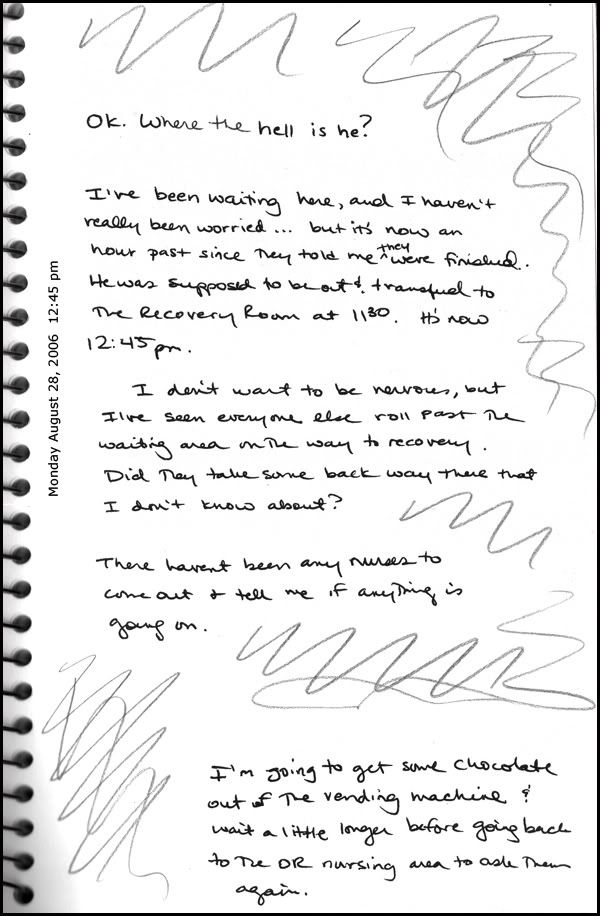 Ok. Where the hell is he?
I've been waiting here, and I haven't
really been worried... but it's now an
hour past since they told me ^they were finished.
He was supposed to be out & transfused to
The Recovery Room at 1130. It's now
12:45 pm.
I don't want to be nervous, but
I've seen everyone else roll past the
waiting area on the way to recovery.
Did they take some back way there that
I don't know about?
There haven't been any nurses to
come out & tell me if anything is
going on.
I'm going to get some chocolate
out of the vending machine &
wait a little longer before going back
to the OR nursing area to ask them
again.
Monday August 28, 2006 12:45 pm